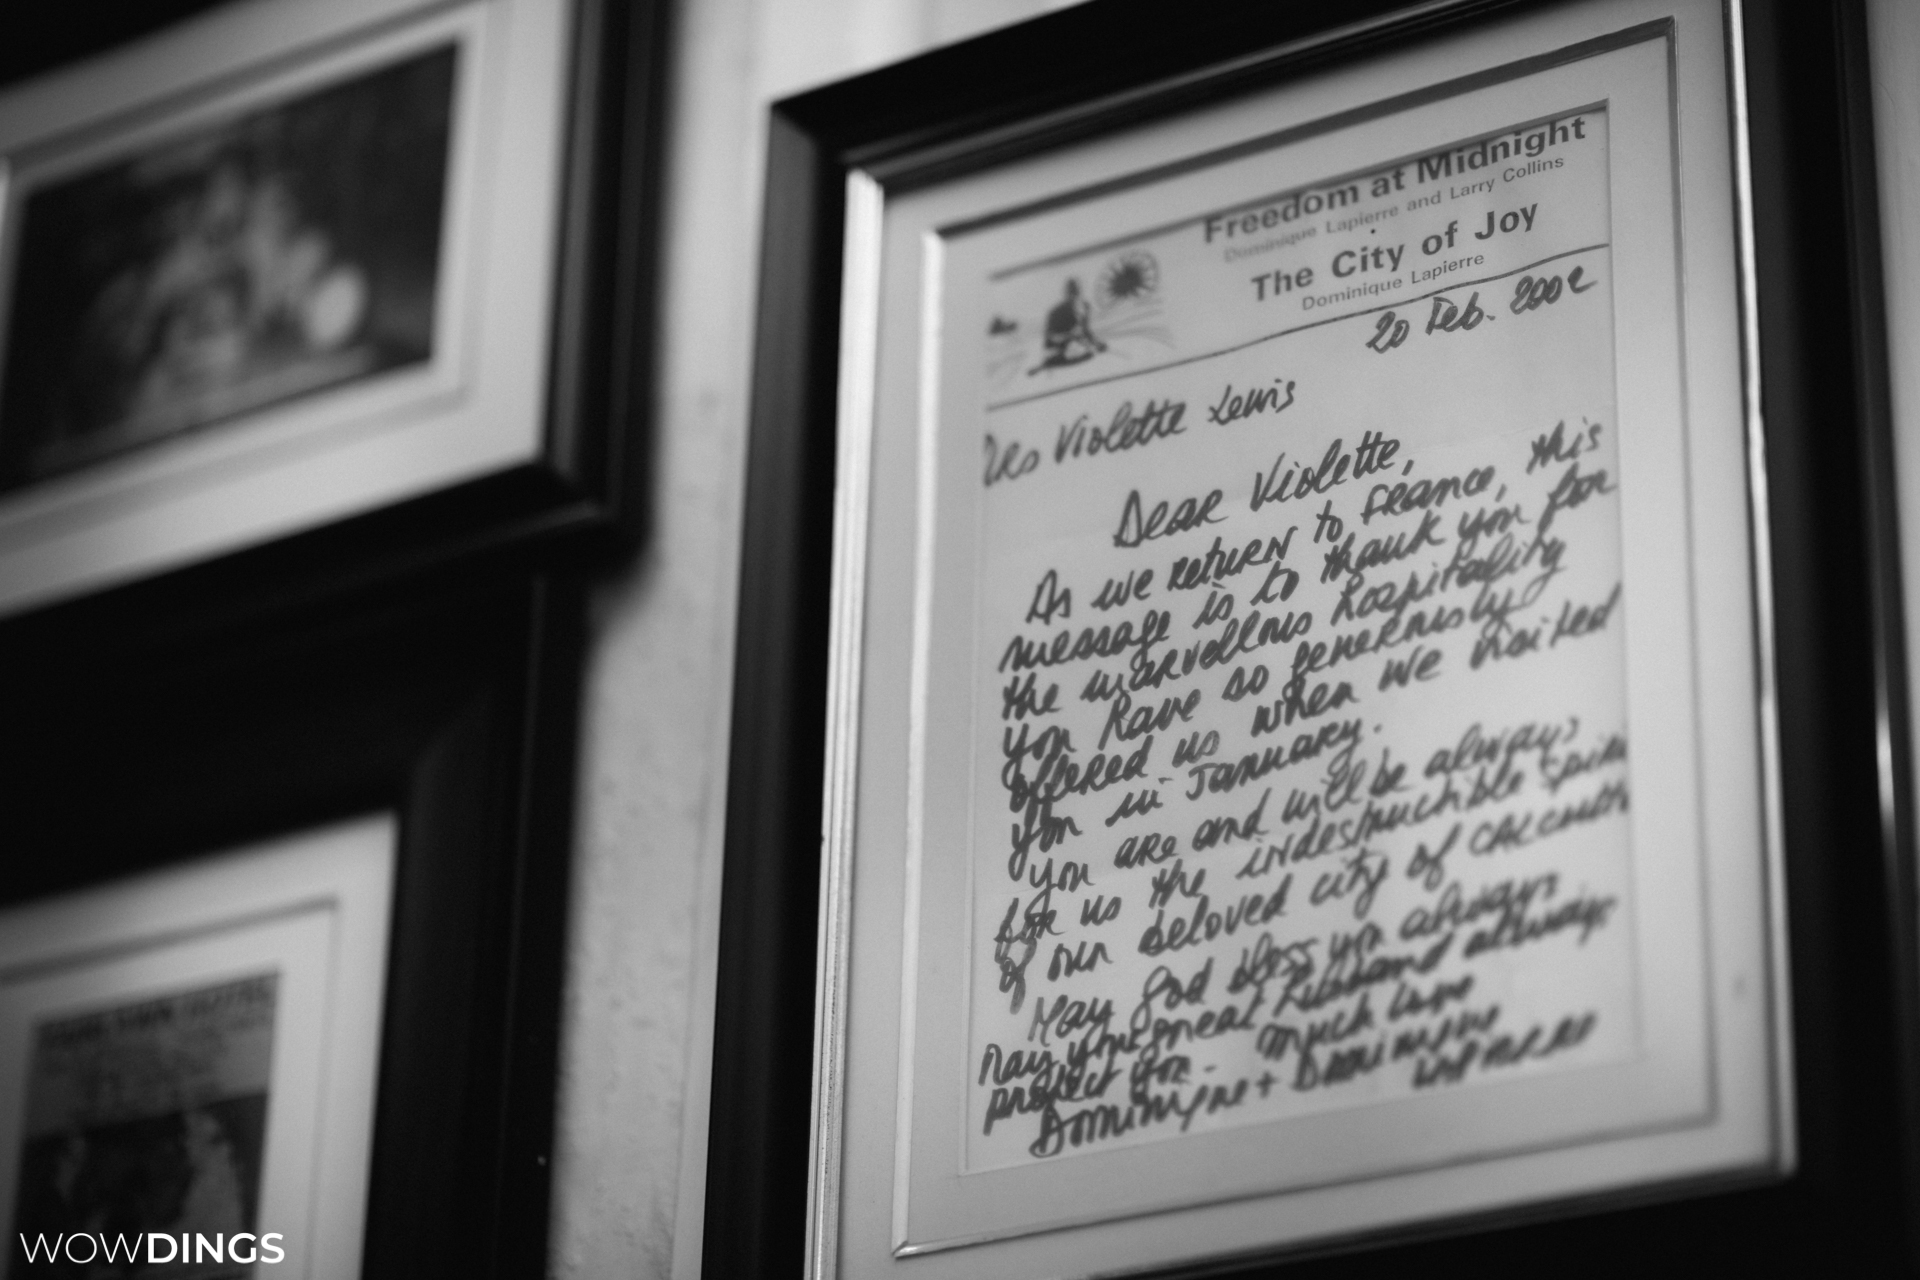 Freedom at Midnight
Dominique Lapierre and Larry Collins
The City of Joy
Dominique Lapierre
20 Feb. 2002
Mrs Violette Lewis
Dear Violette,
As we return to France, this
message is to thank you for
the marvellous hospitality
you have so generously
offered us when we visited
you in January.
You are and will be always
for us the indestructible spirit
of our beloved city of CALCUTTA
May God bless you always
May your great husband always
protect you. Much love
Dominique + Dominique
Lapierre
WOWDINGS